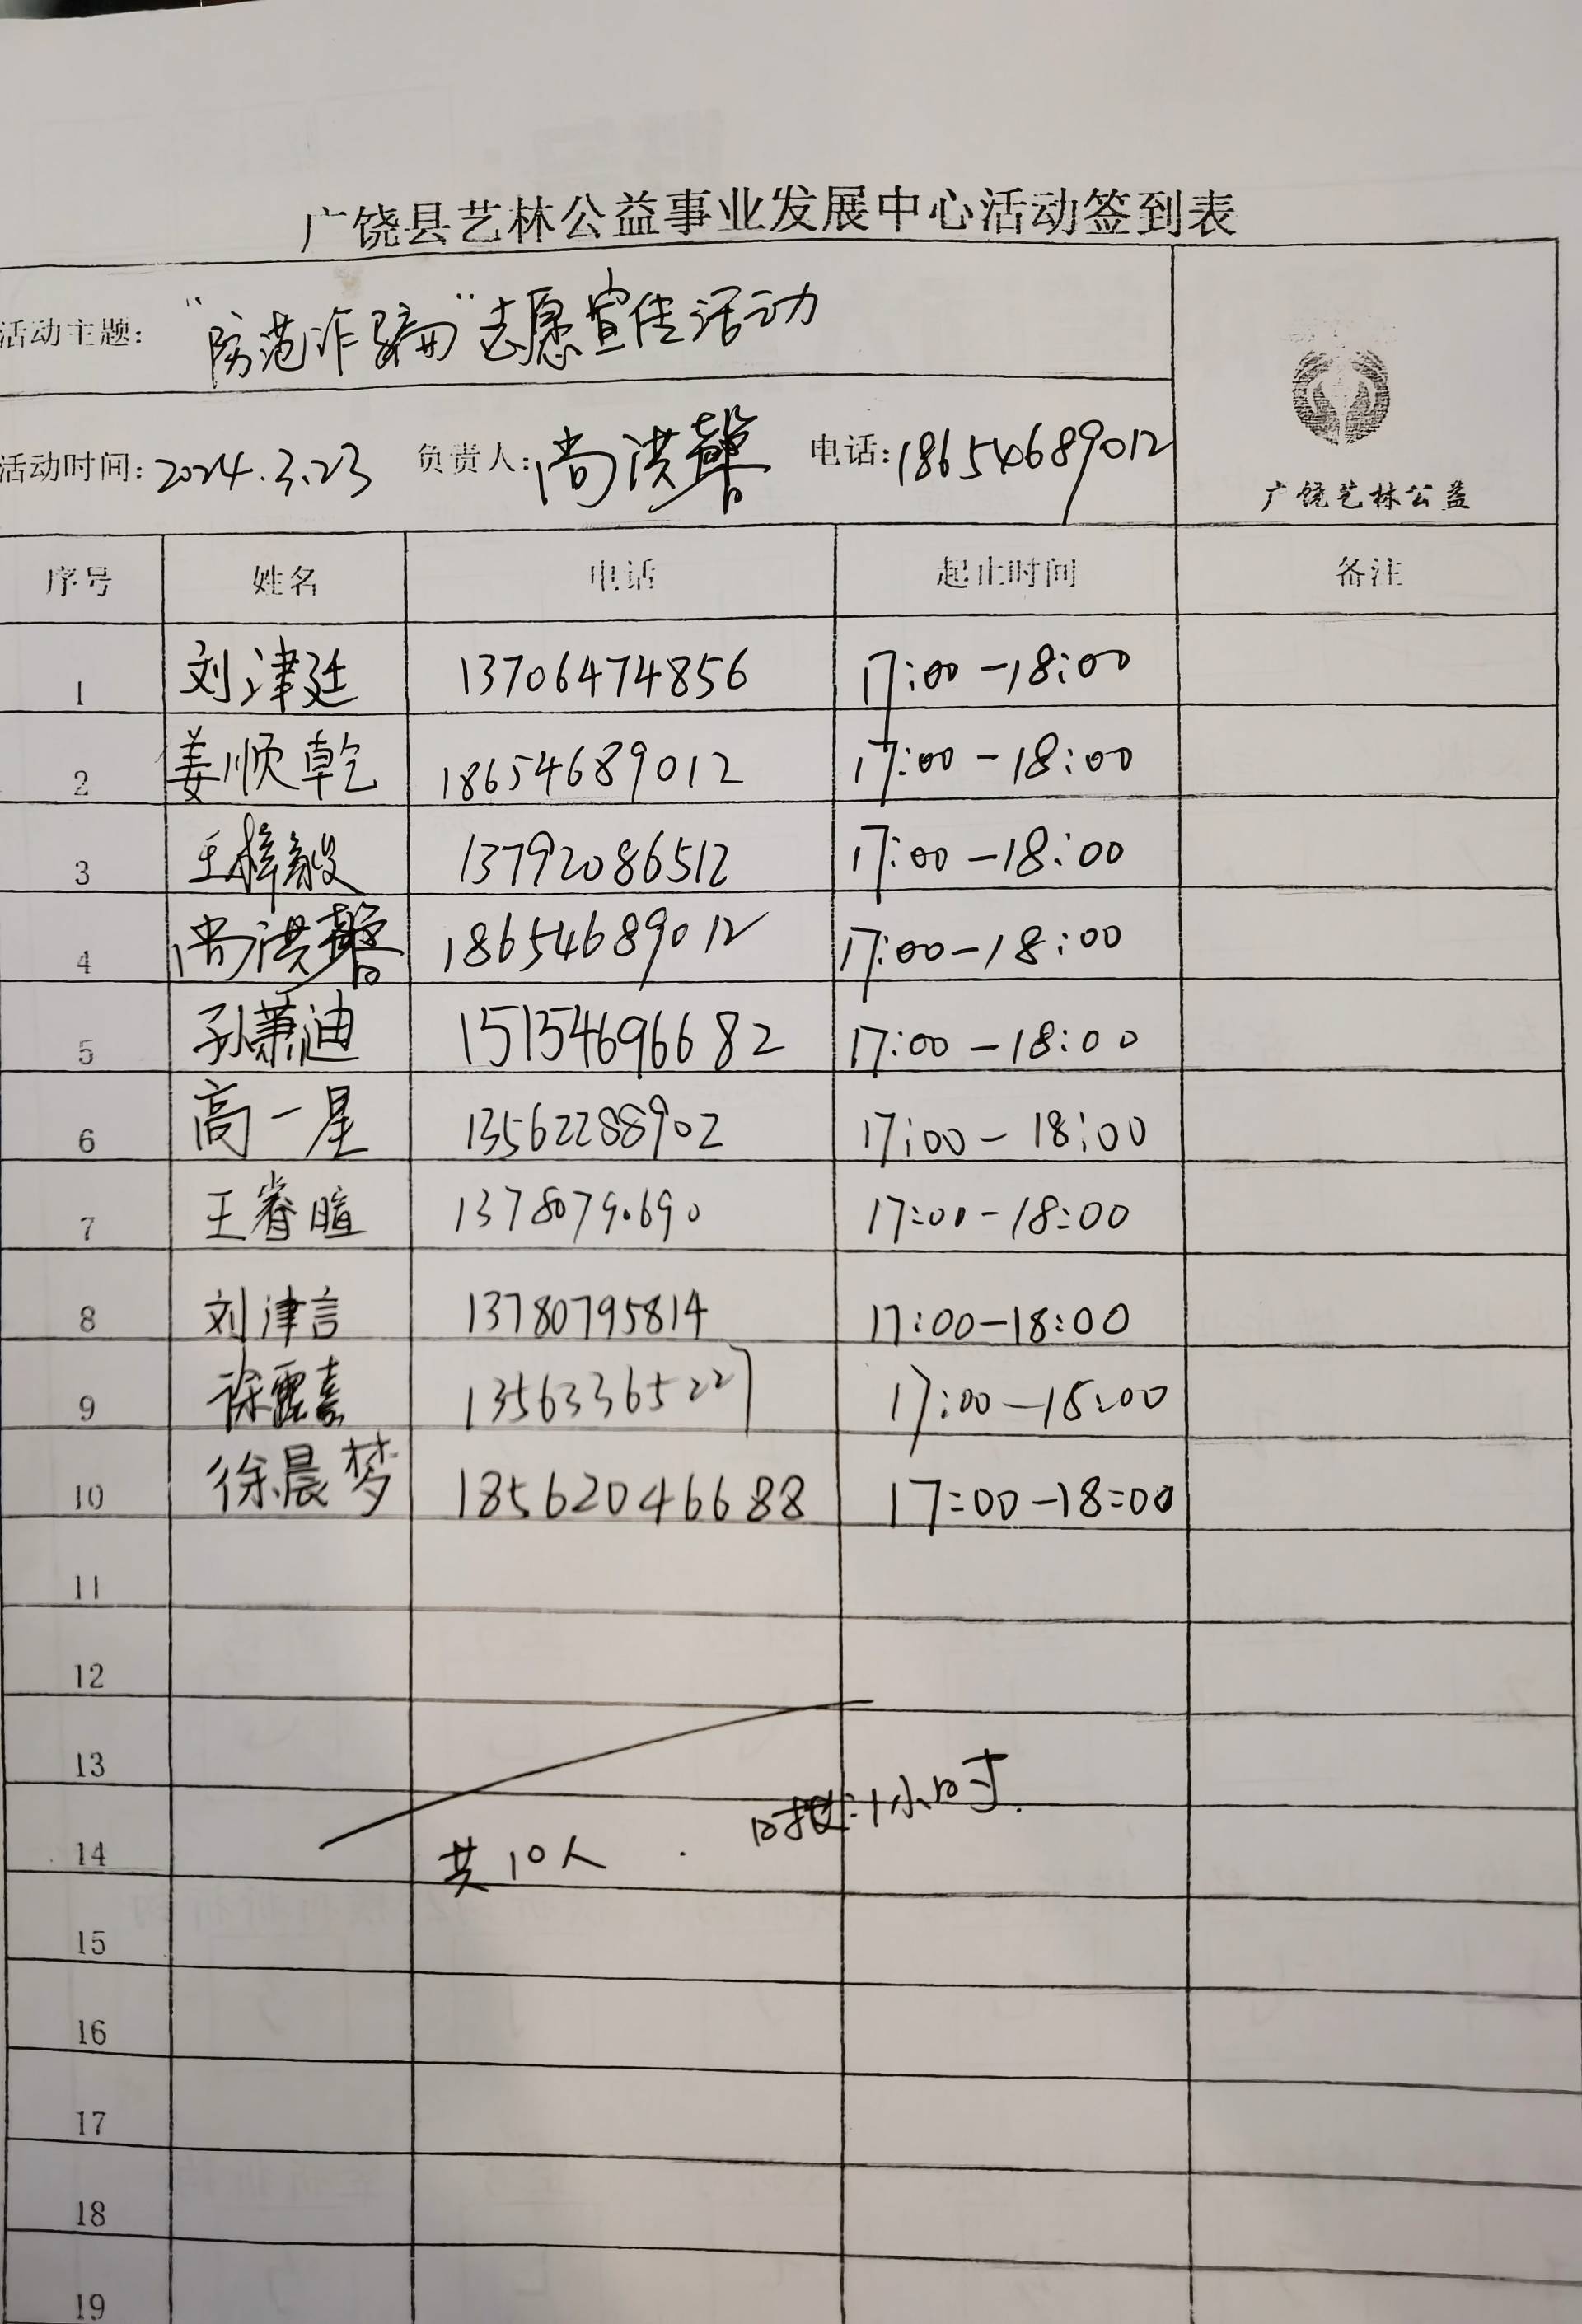 广饶县艺林公益事业发展中心活动签到表
活动主题: “防范诈骗”志愿宣传活动
活动时间: 2024.3.23 负责人: 尚洪馨 电话: 18654689012
广饶艺林公益
序号 姓名 电话 起止时间 备注
1 刘津廷 13706474856 17:00-18:00
2 姜顺乾 18654689012 17:00-18:00
3 王梓毅 13792086512 17:00-18:00
4 尚洪馨 18654689012 17:00-18:00
5 孙萧迪 15154696682 17:00-18:00
6 高一星 13562288902 17:00-18:00
7 王睿暄 13780790690 17:00-18:00
8 刘津言 13780795814 17:00-18:00
9 13563365227 17:00-18:00
10 徐晨梦 18562046688 17:00-18:00
11
12
13
14 共10人. 时长:1小时.
15
16
17
18
19